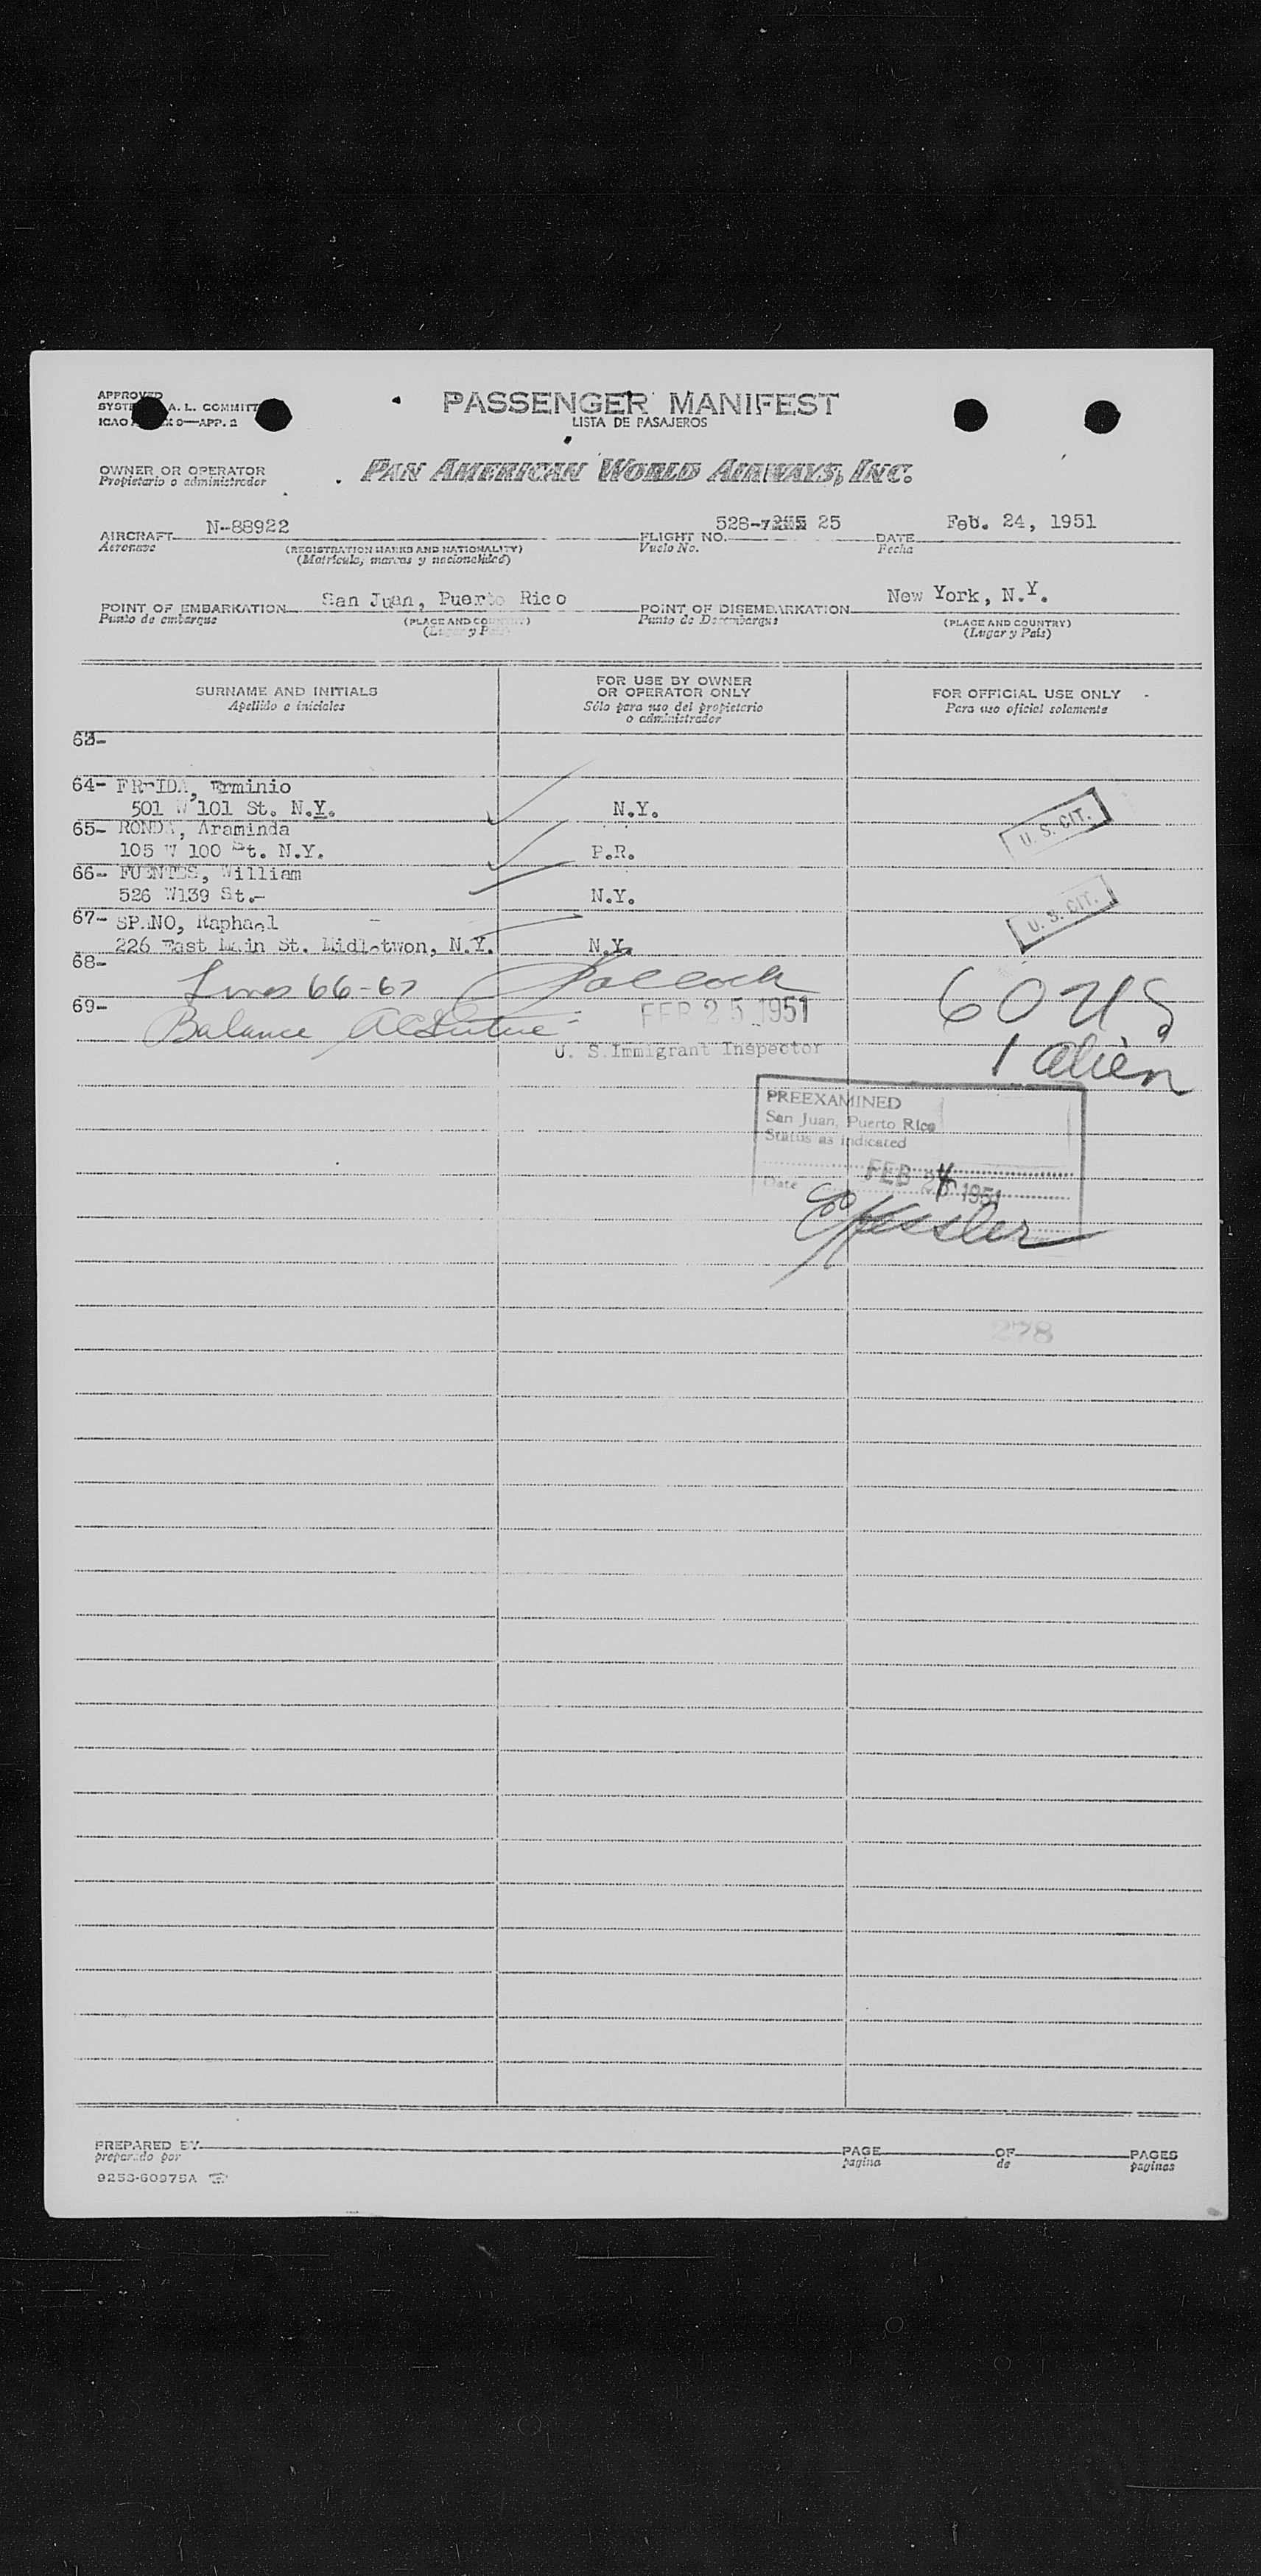 PASSENGER MANIFEST
LISTA DE PASAJEROS
APPROVED
A. L.
ICAO 9—APP. 2
OWNER OR OPERATOR
Propietario o administrador
PAN AMERICAN WORLD AIRWAYS, INC.
AIRCRAFT N-88922 FLIGHT NO. 528- 25 DATE Feb. 24, 1951
Aeronave (REGISTRATION MARKS AND NATIONALITY) Vuelo No. Fecha
(Matrícula, marcas y nacionalidad)
POINT OF EMBARKATION San Juan, Puerto Rico POINT OF DISEMBARKATION New York, N.Y.
Punto de embarque (PLACE AND Punto de Desembarque (PLACE AND COUNTRY)
(Lugar y Pais)
SURNAME AND INITIALS
Apellido e iniciales
FOR USE BY OWNER
OR OPERATOR ONLY
Sólo para uso del propietario
o administrador
FOR OFFICIAL USE ONLY
Para uso oficial solamente
63-
64- Erminio
501 W 101 St. N.Y. N.Y.
U. S. CIT.
65- RONDA, Araminda
105 W 100 St. N.Y. P.R.
66- FUENTES, William
526 W139 St.- N.Y.
U. S. CIT.
67- SPANO, Raphael
226 East Main St. Midletwon, N.Y. N.Y.
68-
Lines 66-67
69-
Balance
FEB 25 1951
U. S. Immigrant Inspector
60 US
1 alien
PREEXAMINED
San Juan, Puerto Rico
Status as indicated
Date FEB 24 1951
Kessler
278
PREPARED BY PAGE OF PAGES
preparado por página de páginas
9253-60975A